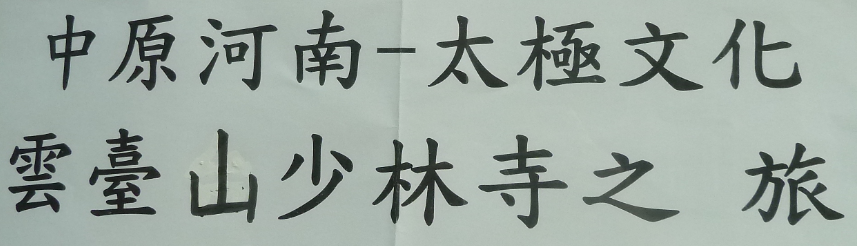 中原河南-太極文化
雲臺山少林寺之 旅